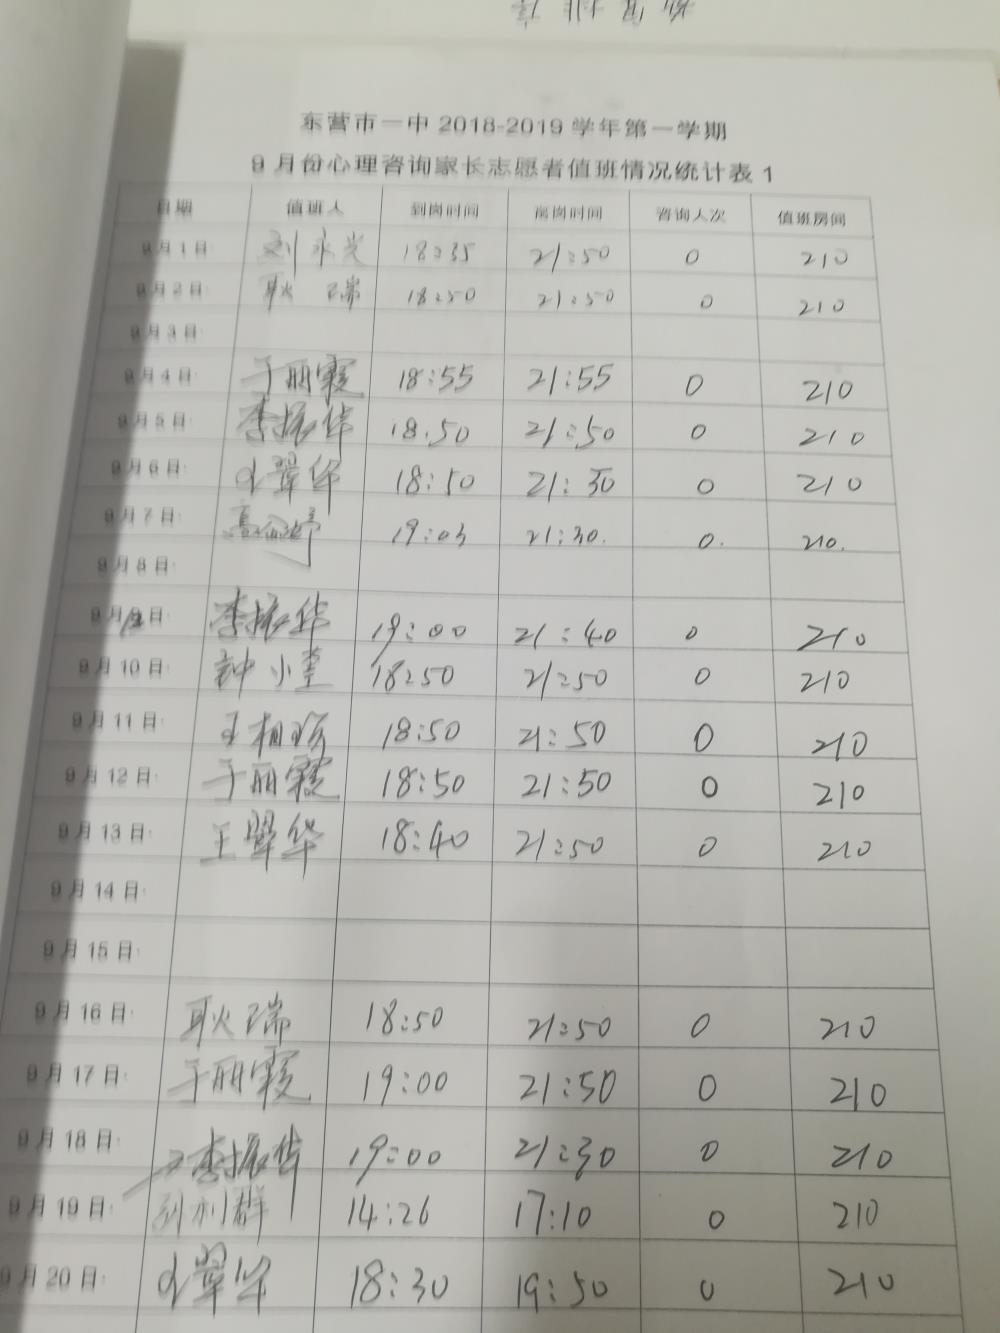 东营市一中 2018-2019 学年第一学期
9 月份心理咨询家长志愿者值班情况统计表 1
日期 值班人 到岗时间 离岗时间 咨询人次 值班房间
9月1日: 刘永光 18:35 21:50 0 210
9月2日: 耿瑞 18:50 21:50 0 210
9月3日:
9月4日: 于丽霞 18:55 21:55 0 210
9月5日: 李振华 18.50 21:50 0 210
9月6日: 翠华 18:50 21:30 0 210
9月7日: 19:03 21:30. 0. 210.
9月8日:
9月9日: 李振华 19:00 21:40 0 210
9月10日: 钟小 18:50 21:50 0 210
9月11日: 王相 18:50 21:50 0 210
9月12日: 于丽霞 18:50 21:50 0 210
9月13日: 王翠华 18:40 21:50 0 210
9月14日:
9月15日:
9月16日: 耿瑞 18:50 21:50 0 210
9月17日: 于丽霞 19:00 21:50 0 210
9月18日: 李振华 19:00 21:30 0 210
9月19日: 刘利群 14:26 17:10 0 210
9月20日: 翠华 18:30 19:50 0 210